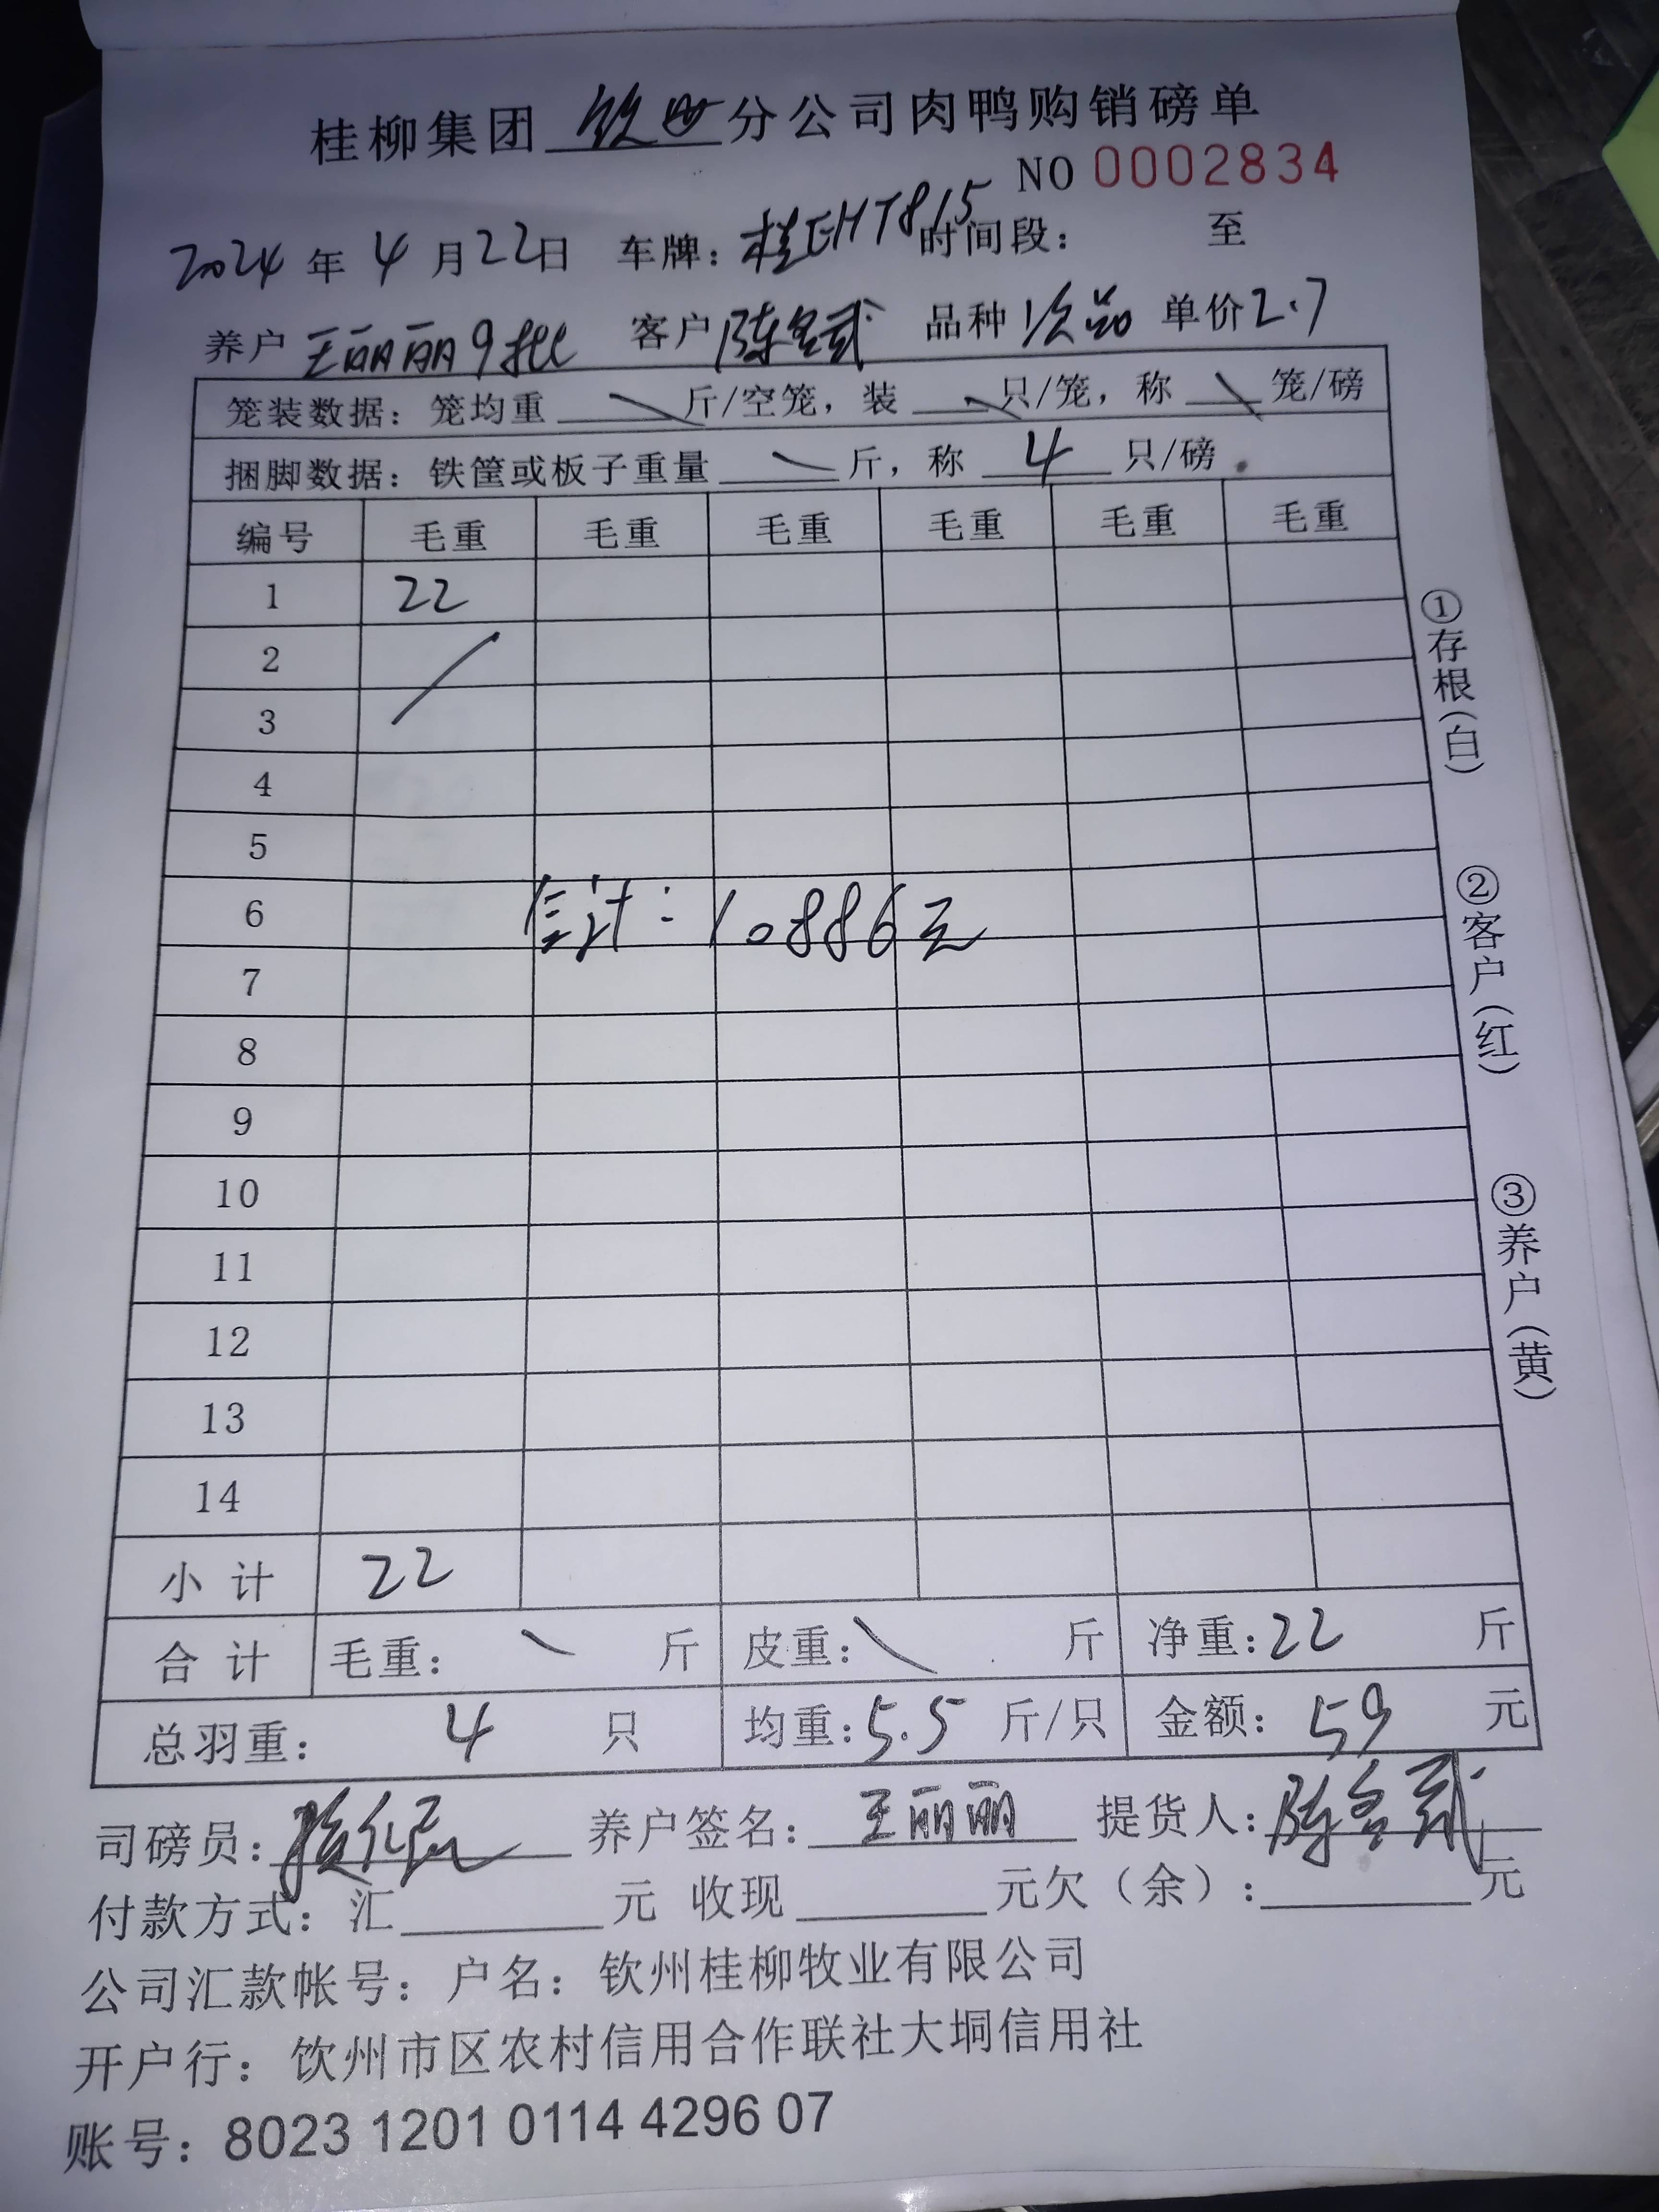 桂柳集团 钦州 分公司肉鸭购销磅单
NO 0002834
2024 年 4 月 22 日 车牌: 桂EHT815 时间段: 至
养户 王丽丽9批 客户 陈 品种 次品 单价 2.7
笼装数据: 笼均重 斤/空笼, 装 只/笼, 称 笼/磅
捆脚数据: 铁筐或板子重量 斤, 称 4 只/磅
编号 毛重 毛重 毛重 毛重 毛重 毛重
1 22
2
3
4
5
6
合计: 10886元
7
8
9
10
11
12
13
14
小计 22
合计 毛重: 斤 皮重: 斤 净重: 22 斤
总羽重: 4 只 均重: 5.5 斤/只 金额: 59 元
司磅员: 养户签名: 王丽丽 提货人: 陈
付款方式: 汇 元 收现 元欠(余): 元
公司汇款帐号: 户名: 钦州桂柳牧业有限公司
开户行: 钦州市区农村信用合作联社大垌信用社
账号: 8023 1201 0114 4296 07
①存根(白)
②客户(红)
③养户(黄)